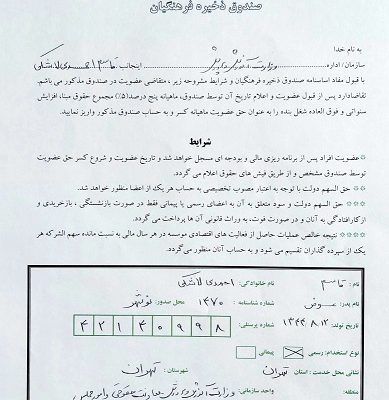 صندوق ذخیره فرهنگیان
به نام خدا
سازمان / اداره: وزارت آموزش و پرورش اینجانب قاسم احمدی لاشکی
با قبول مفاد اساسنامه صندوق ذخیره فرهنگیان و شرایط مشروحه زیر ، متقاضی عضویت در صندوق مذکور می باشم.
تقاضا دارد پس از قبول عضویت و اعلام تاریخ آن توسط صندوق، ماهیانه پنج درصد (٪۵) مجموع حقوق مبنا، افزایش
سنواتی و فوق العاده شغل بنده را به عنوان حق عضویت ماهیانه کسر و به حساب صندوق مذکور واریز نمایید.
شرایط
* عضویت افراد پس از برنامه ریزی مالی و بودجه ای مسجل خواهد شد و تاریخ عضویت و شروع کسر حق عضویت
توسط صندوق مشخص و از طریق فیش های حقوق اعلام می گردد.
** حق السهم دولت با توجه به اعتبار مصوب تخصیصی به حساب هر یک از اعضا منظور خواهد شد.
*** حق السهم دولت و سود متعلق به آن به اعضای رسمی یا پیمانی فقط در صورت بازنشستگی ، بازخریدی و
ازکارافتادگی به آنان و در صورت فوت، به وراث قانونی آن ها پرداخت می گردد.
**** نتیجه خالص عملیات حاصل از فعالیت های اقتصادی موسسه در هر سال مالی به نسبت مانده سهم الشرکه هر
یک از سپرده گذاران تقسیم می شود و به حساب آنان منظور می گردد.
نام : قاسم نام خانوادگی: احمدی لاشکی
نام پدر: عوض شماره شناسنامه : ۱۴۷۰ محل صدور: نوشهر
تاریخ تولد: ۱۳۴۴/۸/۱۲ شماره پرسنلی: ۴۲۱۴۰۹۹۸
نوع استخدام: رسمی ☒ پیمانی ☐
نشانی محل خدمت : استان تهران شهرستان : تهران
منطقه: واحد سازمانی: وزارت آموزش و پرورش معاونت حقوقی و امور مجلس